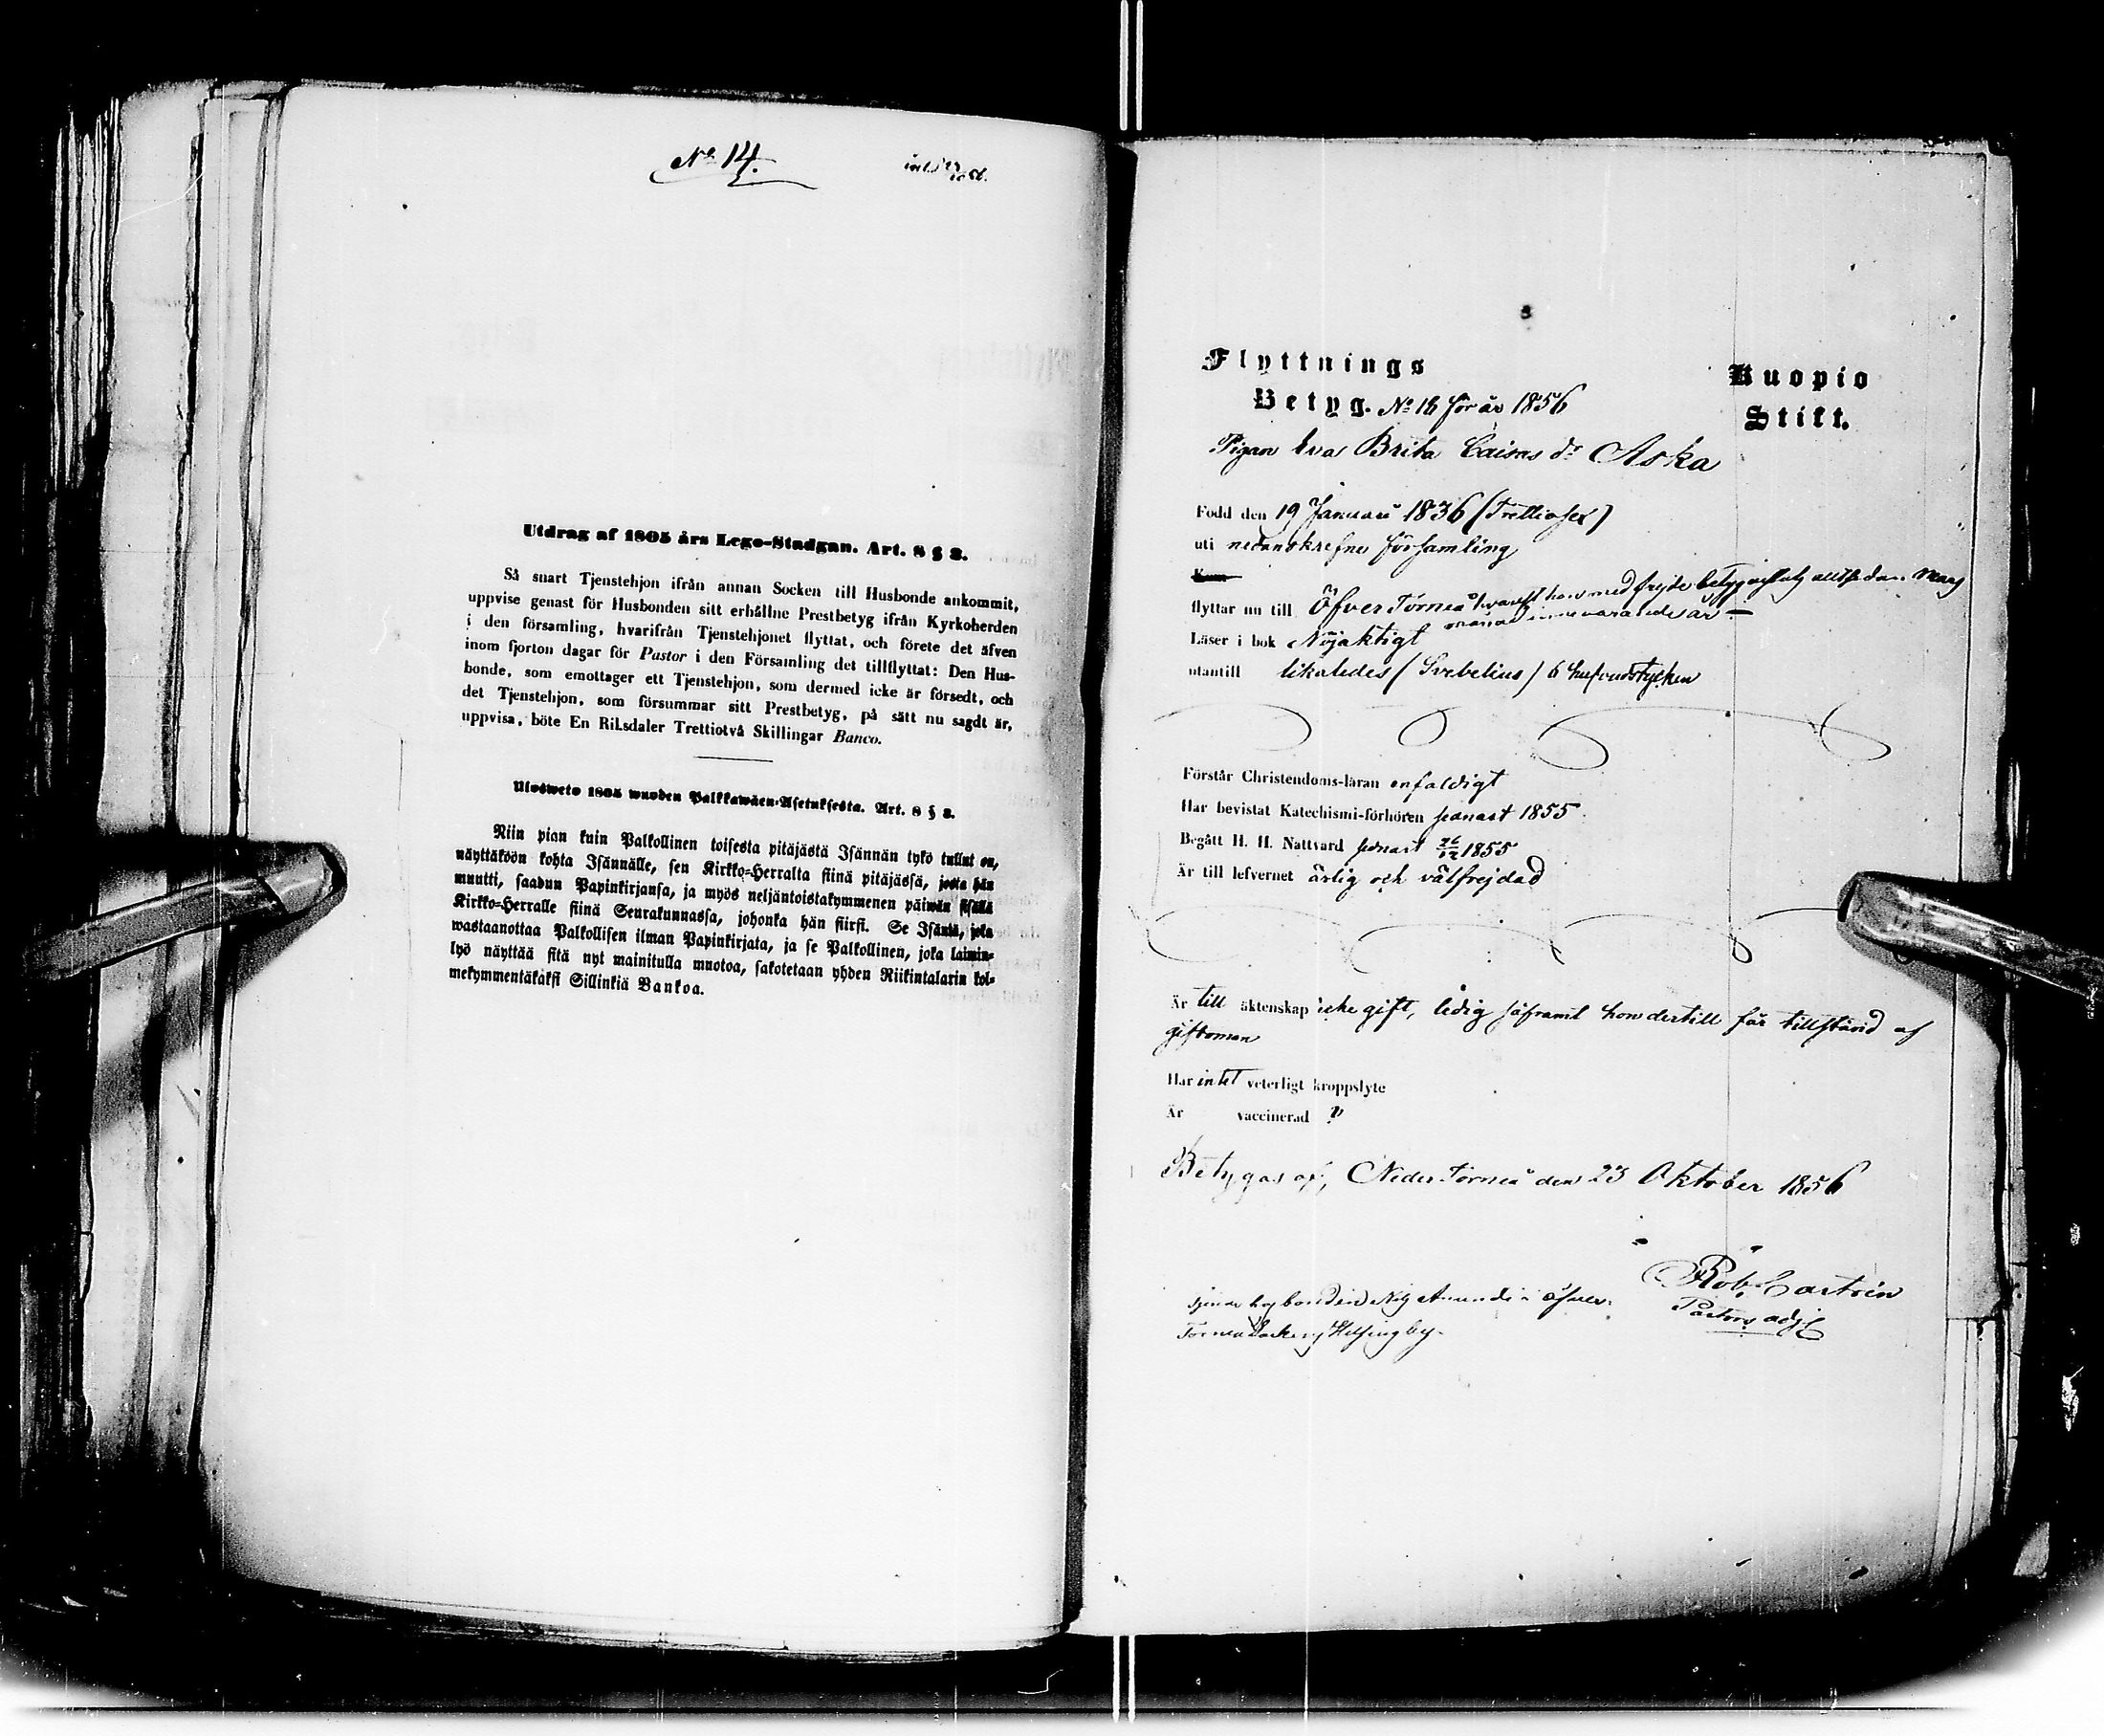 No 14.
inl. d 27/10 56.
Utdrag af 1805 års Lego-Stadgan. Art. 8 § 3.
Så snart Tjenstehjon ifrån annan Socken till Husbonde ankommit,
uppvise genast för Husbonden sitt erhållne Prestbetyg ifrån Kyrkoherden
i den församling, hvarifrån Tjenstehjonet flyttat, och förete det äfven
inom fjorton dagar för Pastor i den Församling det tillflyttat: Den Hus-
bonde, som emottager ett Tjenstehjon, som dermed icke är försedt, och
det Tjenstehjon, som försummar sitt Prestbetyg, på sätt nu sagdt är,
uppvisa, böte En Riksdaler Trettiotvå Skillingar Banco.
Ulosweto 1805 wuoden Palkkawäen-Asetuksesta. Art. 8 § 3.
Niin pian kuin Palkollinen toisesta pitäjästä Isännän tykö tullut on,
näyttäköön kohta Isännälle, sen Kirkko-Herralta siinä pitäjässä, josta hän
muutti, saadun Papinkirjansa, ja myös neljäntoistakymmenen päiwän sisällä
Kirkko-Herralle siinä Seurakunnassa, johonka hän siirsi. Se Isäntä, joka
wastaanottaa Palkollisen ilman Papinkirjata, ja se Palkollinen, joka laimin-
lyö näyttää sitä nyt mainitulla muotoa, sakotetaan yhden Riikintalarin kol-
mekymmentäkaksi Sillinkiä Bankoa.
Flyttnings
Betyg. No 16 för år 1856
Kuopio
Stift.
Pigan Eva Brita Caisas dr Aska
Född den 19 Januari 1836 (Trettiosex)
uti nedanskrefne församling
flyttar nu till Öfver Torneå hvarest hon med frejde betyg vistats alltsedan Mars
månad innevarande år —
Läser i bok Nöjaktigt
utantill likaledes (Svebelius) 6 hufvudstycken
Förstår Christendoms-läran enfaldigt
Har bevistat Katechismi-förhören senast 1855
Begått H. H. Nattvard senast 26/12 1855
Är till lefvernet ärlig och välfrejdad
Är till äktenskap icke gift, ledig såframt hon dertill får tillstånd af
giftoman
Har intet veterligt kroppslyte
Är vaccinerad v
Betygas af, Neder Torneå den 23 Oktober 1856
Rob. Castrén
Pastors adj.
tjenar hos bonden Nils Amundi i Öfver
Torneå Socken Helsingby.